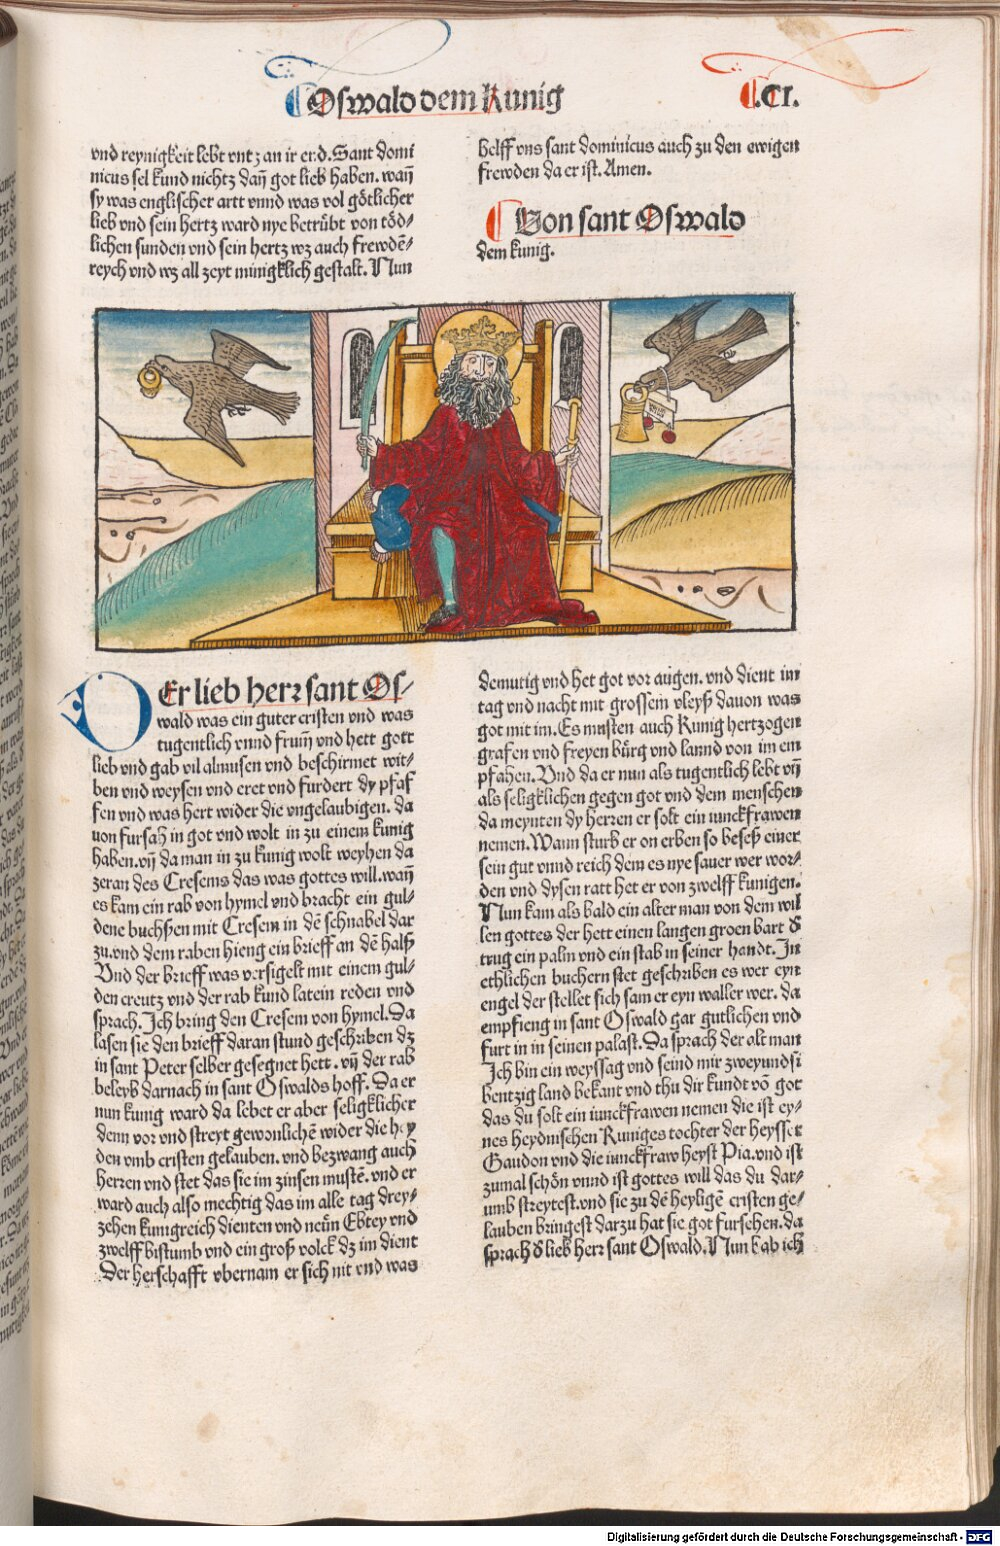 Oswald dem Kunig
.CI.
vnd reynigkeit lebt vntz an ir end. Sant domi
nicus sel kund nichtz dañ got lieb haben. wañ
sy was englischer artt vnnd was vol götlicher
lieb vnd sein hertz ward nye betrübt von töd⸗
lichen sunden vnd sein hertz wz auch frewdē⸗
reych vnd wz all zeyt minigklich gestalt. Nun
helff vns sant dominicus auch zu den ewigen
frewden da er ist. Amen.
Von sant Oswald
dem kunig.
DEr lieb herr sant Os⸗
wald was ein guter cristen vnd was
tugentlich vnnd frum̃ vnd hett gott
lieb vnd gab vil almusen vnd beschirmet wit⸗
ben vnd weysen vnd eret vnd furdert dy pfaf
fen vnd was hert wider die vngelaubigen. da
von fursah in got vnd wolt in zu einem kunig
haben. vñ da man in zu kunig wolt weyhen da
zeran des Cresems das was gottes will. wañ
es kam ein rab von hymel vnd bracht ein gul⸗
dene buchßen mit Cresem in dē schnabel dar
zu. vnd dem raben hieng ein brieff an dē halß
Vnd der brieff was versigelt mit einem gul⸗
den creutz vnd der rab kund latein reden vnd
sprach. Ich bring den Cresem von hymel. Da
lasen sie den brieff daran stund geschriben dz
in sant Peter selber gesegnet hett. vñ der rab
beleyb darnach in sant Oswalds hoff. Da er
nun kunig ward da lebet er aber seligklicher
denn vor vnd streyt gewonlichē wider die hey
den vmb cristen gelauben. vnd bezwang auch
herren vnd stet das sie im zinsen mustē. vnd er
ward auch also mechtig das im alle tag drey⸗
zehen kunigreich dienten vnd neün Ebtey vnd
zwelff bistumb vnd ein groß volck dz im dient
Der herschafft vbernam er sich nit vnd was
demutig vnd het got vor augen. vnd dient im
tag vnd nacht mit grossem vleyß dauon was
got mit im. Es musten auch Kunig hertzogen
grafen vnd freyen bürg vnd lannd von im em
pfahen. Vnd da er nun als tugentlich lebt vñ
als seligklichen gegen got vnd dem menschen
da meynten dy herren er solt ein iunckfrawen
nemen. Wann sturb er on erben so beseß einer
sein gut vnnd reich dem es nye sauer wer wor⸗
den vnd dysen ratt het er von zwelff kunigen.
Nun kam als bald ein alter man von dem wil
len gottes der hett einen langen groen bart đ
trug ein palm vnd ein stab in seiner handt. In
ethlichen buchern stet geschriben es wer eyn
engel der stellet sich sam er eyn waller wer. da
empfieng in sant Oswald gar gutlichen vnd
furt in in seinen palast. Da sprach der alt man
Ich bin ein weyssag vnd seind mir zweyundsi
bentzig land bekant vnd thu dir kundt vō got
das du solt ein iunckfrawen nemen die ist ey⸗
nes heydnischen Kuniges tochter der heysset
Gaudon vnd die iunckfraw heyst Pia. vnd ist
zumal schön vnnd ist gottes will das du dar⸗
umb streytest. vnd sie zu dē heyligē cristen ge⸗
lauben bringest darzu hat sie got fursehen. da
sprach đ lieb herr sant Oswald. Nun hab ich
Digitalisierung gefördert durch die Deutsche Forschungsgemeinschaft - DFG